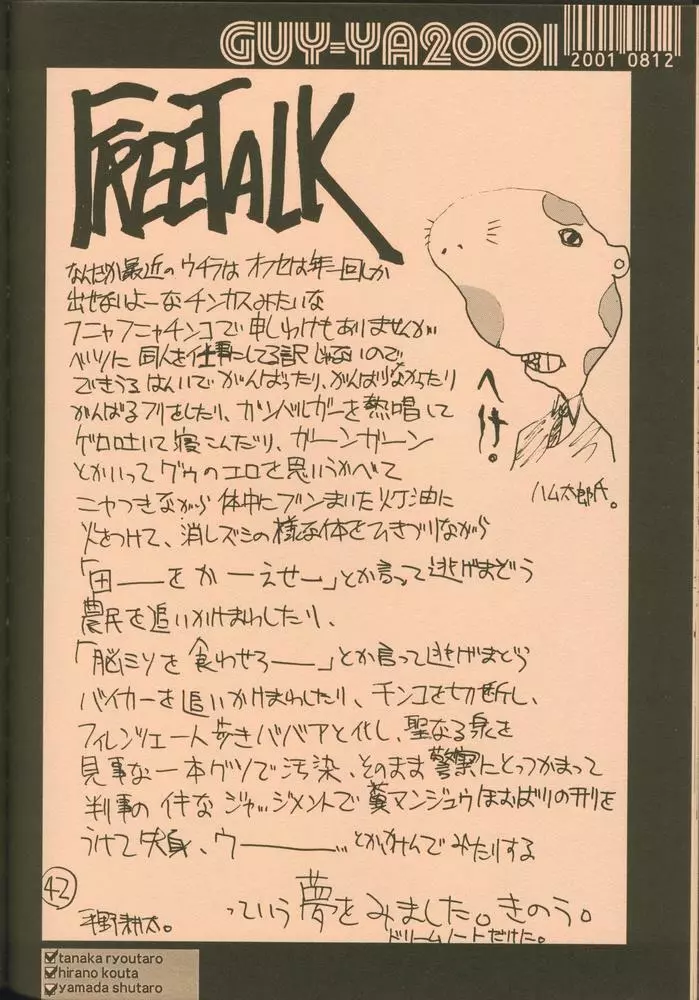 GUY-YA2001
2001 0812
FREETALK
なんだか最近のウチラはオフセは年一回しか
出せないよーなチンカスみたいな
フニャフニャチンコで申しわけもありませんが
ベツに同人を仕事にしてる訳じゃないので
できうるはんいでがんばったり、がんばりなかったり
がんばるフリをしたり、ガンバルガーを熱唱して
ゲロ吐いて寝こんだり、ガーンガーン
とかいってグゥのエロを思いうかべて
ニヤつきながら体中にブンまいた灯油に
火をつけて、消しズミの様な体をひきづりながら
「田——をかーえせー」とか言って逃げまどう
農民を追いかけまわしたり、
「脳ミソを食わせろ——」とか言って逃げまどう
バイカーを追いかけまわしたり、チンコを切断し、
フィレンツェ一人歩きババアと化し、聖なる泉を
見事な一本グソで汚染、そのまま警察にとっつかまって
判事のイキなジャッジメントで糞マンジュウほおばりの刑を
うけて失身、ウ————…とかかけんでみたりする
っていう夢をみました。きのう。
ドリームノートだけた。
へけ!
ハム太郎氏。
42
平野耕太。
tanaka ryoutaro
hirano kouta
yamada shutaro